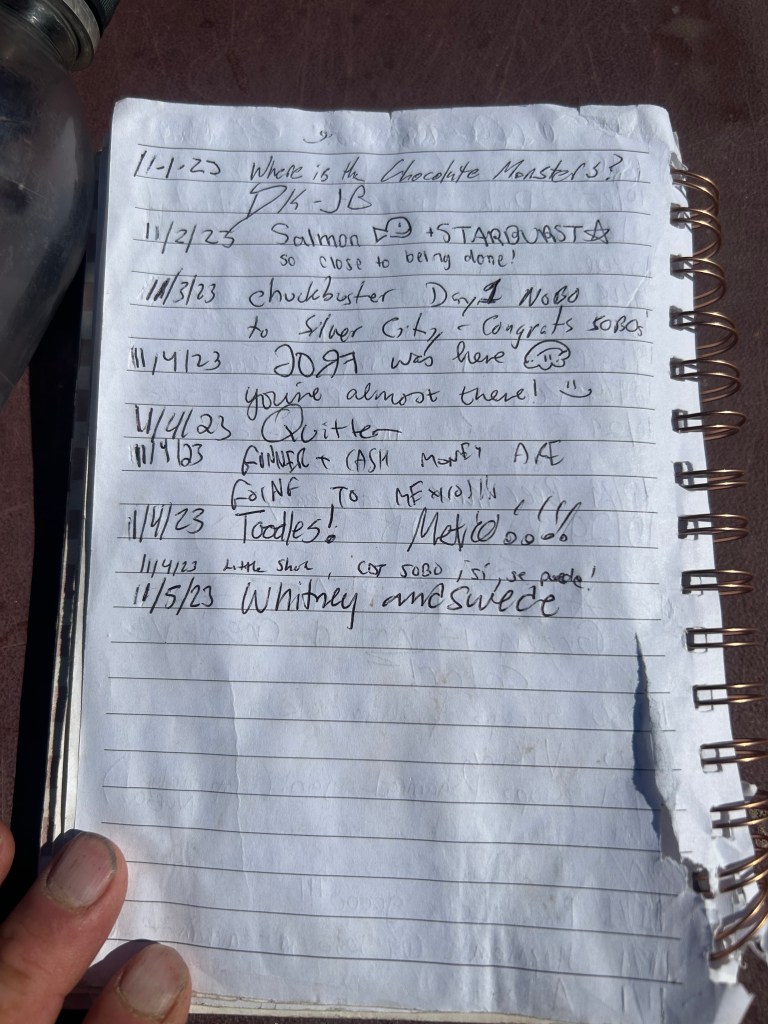 11-1-23 Where is the Chocolate Monsters?
DK-JB
11/2/23 Salmon + STARBURST
so close to being done!
11/3/23 chuckbuster Day 1 NOBO
to Silver City - Congrats SOBOs
11/4/23 was here
you're almost there! :)
11/4/23 Quitter
11/4/23 + CASH MONEY ARE
GOING TO MEXICO!!!
11/4/23 Toodles! Mexico!!!!
11/4/23 Little Shot, CDT SOBO, ¡sí, se puede!
11/5/23 Whitney and Swede